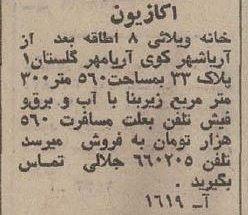 اکازیون
خانه ویلائی ۸ اطاقه بعد از
آریاشهر کوی آریامهر گلستان۱
پلاک ۳۳ بمساحت۵۶۰ متر۳۰۰
متر مربع زیربنا با آب و برق‌و
فیش تلفن بعلت مسافرت ۵۶۰
هزار تومان به فروش میرسد
تلفن ۶۶۰۲۰۵ جلالی تماس
بگیرید .
آ‍ـ ۱۶۱۹